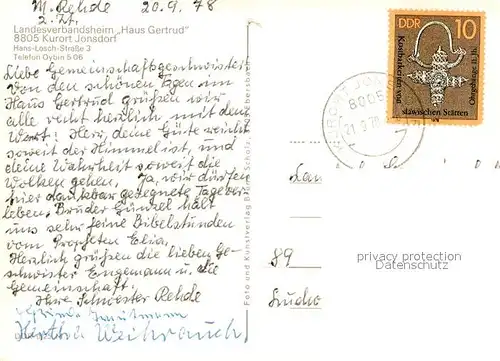 M. Rehde 20.9.78
z. Zt.
Landesverbandsheim „Haus Gertrud"
8805 Kurort Jonsdorf
Hans-Losch-Straße 3
Telefon Oybin 5 06
Liebe Gemeinschaftsgeschwister
Von den schönen Tagen im
Haus Gertrud grüßen wir
alle recht herzlich mit dem
Wort: Herr, deine Güte reicht
soweit der Himmel ist, und
deine Wahrheit soweit die
Wolken gehen. Ja, wir dürfen
hier dankbar gesegnete Tage ver-
leben. Bruder Günzel hält
uns sehr feine Bibelstunden
vom Propheten Elia.
Herzlich grüßen die lieben Ge-
schwister Engemann u. die
Gemeinschaft.
Ihre Schwester Rehde
Weihrauch
Foto und Kunstverlag Scholz, Ebersbach
DDR 10
Kostbarkeiten von
slawischen Stätten
Ohrgehänge 11. Jh.
KURORT JONSDORF
8805
21.9.78
89
privacy protection
Datenschutz